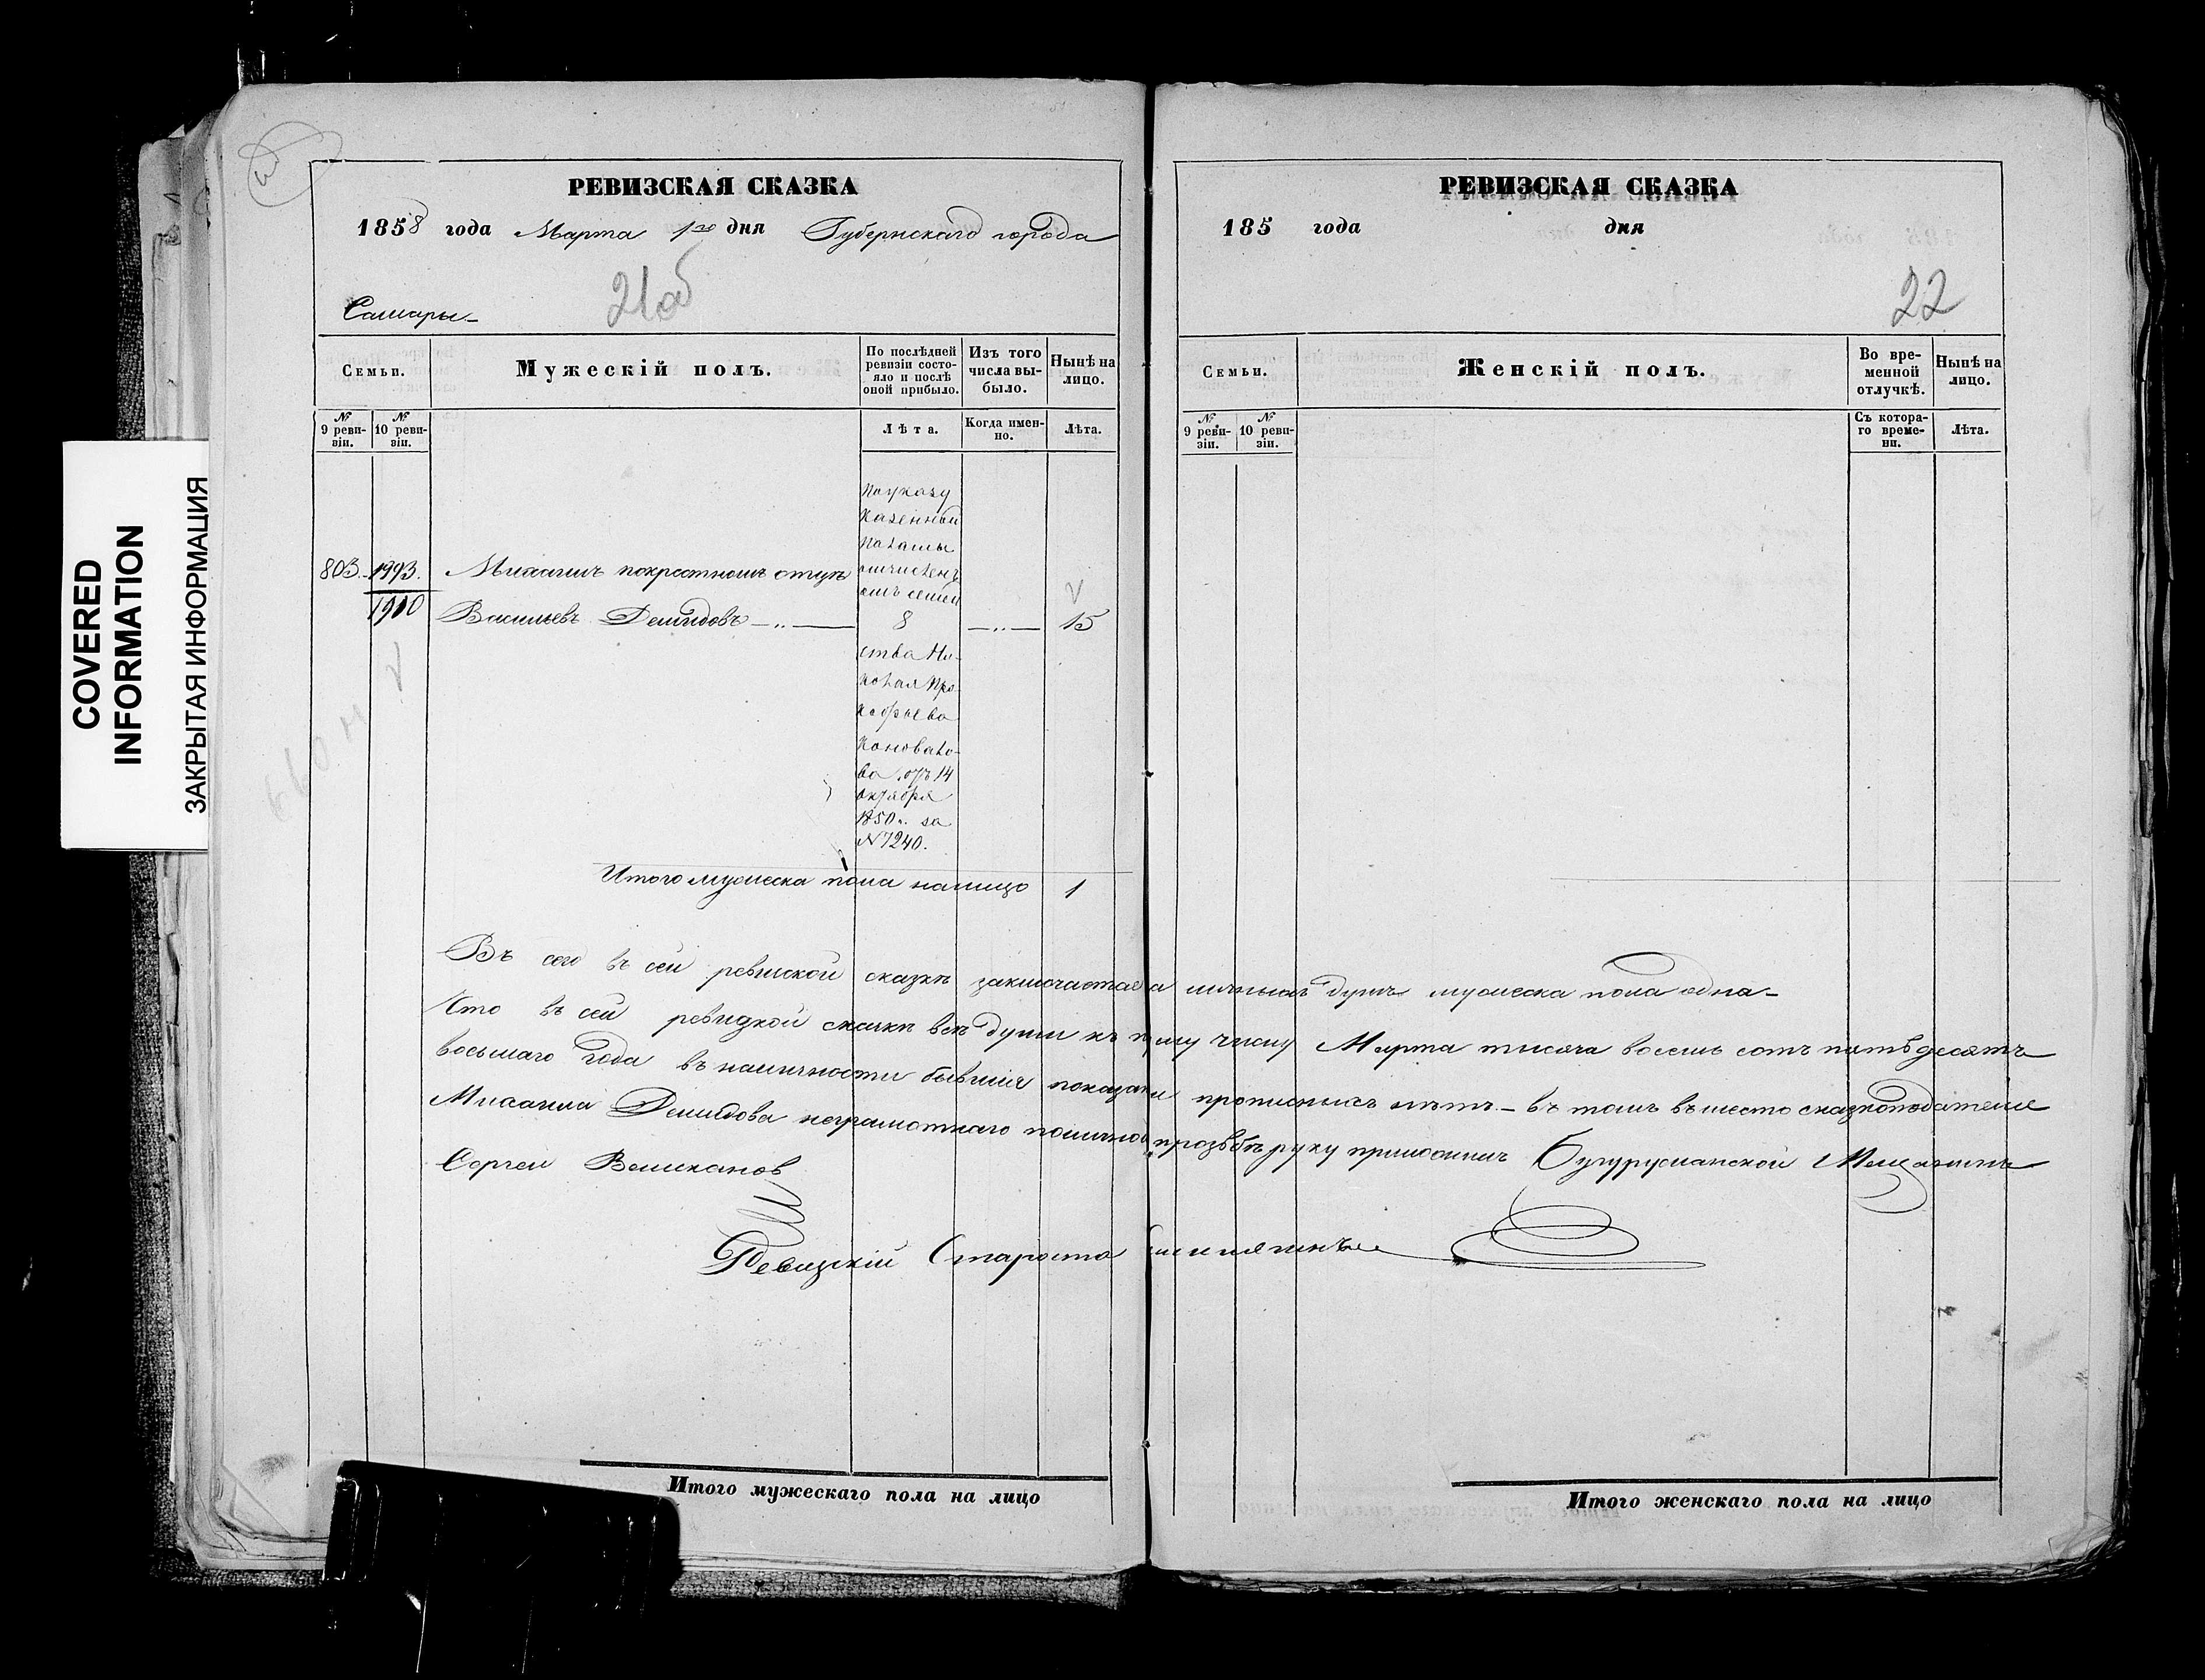 COVERED INFORMATION
ЗАКРЫТАЯ ИНФОРМАЦИЯ
РЕВИЗСКАЯ СКАЗКА
1858 года Марта 1го дня Губернскаго города
Самары
21об
Семьи.
Мужескій полъ.
По послѣдней ревизіи состояло и послѣ оной прибыло.
Изъ того числа выбыло.
Нынѣ на лицо.
№ 9 ревизіи.
№ 10 ревизіи.
Лѣта.
Когда именно.
Лѣта.
По указу
Казенной
Палаты
отчисленъ
отъ семей
803. 1993. Михаилъ покрестномъ отцѣ
1910 Васильевъ Демидовъ 8 15
ства Ни-
колая Про-
кофьева
Коновало-
ва отъ 14
октября
1850 г. за
№ 7240.
Итого мужеска пола налицо 1
РЕВИЗСКАЯ СКАЗКА
185 года дня
22
Семьи.
Женскій полъ.
Во временной отлучкѣ.
Нынѣ на лицо.
№ 9 ревизіи.
№ 10 ревизіи.
Съ котораго времени.
Лѣта.
Въ сего въ сей ревиской сказкѣ заключается личныхъ душъ мужеска пола одна
Что въ сей ревизкой сказкѣ всѣ души къ числу Марта тысяча восемь сотъ пятьдесятъ
восьмаго года въ наличности бывшие показаны прописныхъ нѣтъ - въ томъ вместо сказкоподателя
Михаила Демидова неграмотнаго полично прозьбѣ руку приложилъ Бугурусланской Мещанинъ
Сергей Великанов
Ревизскій Староста
Итого мужескаго пола на лицо
Итого женскаго пола на лицо